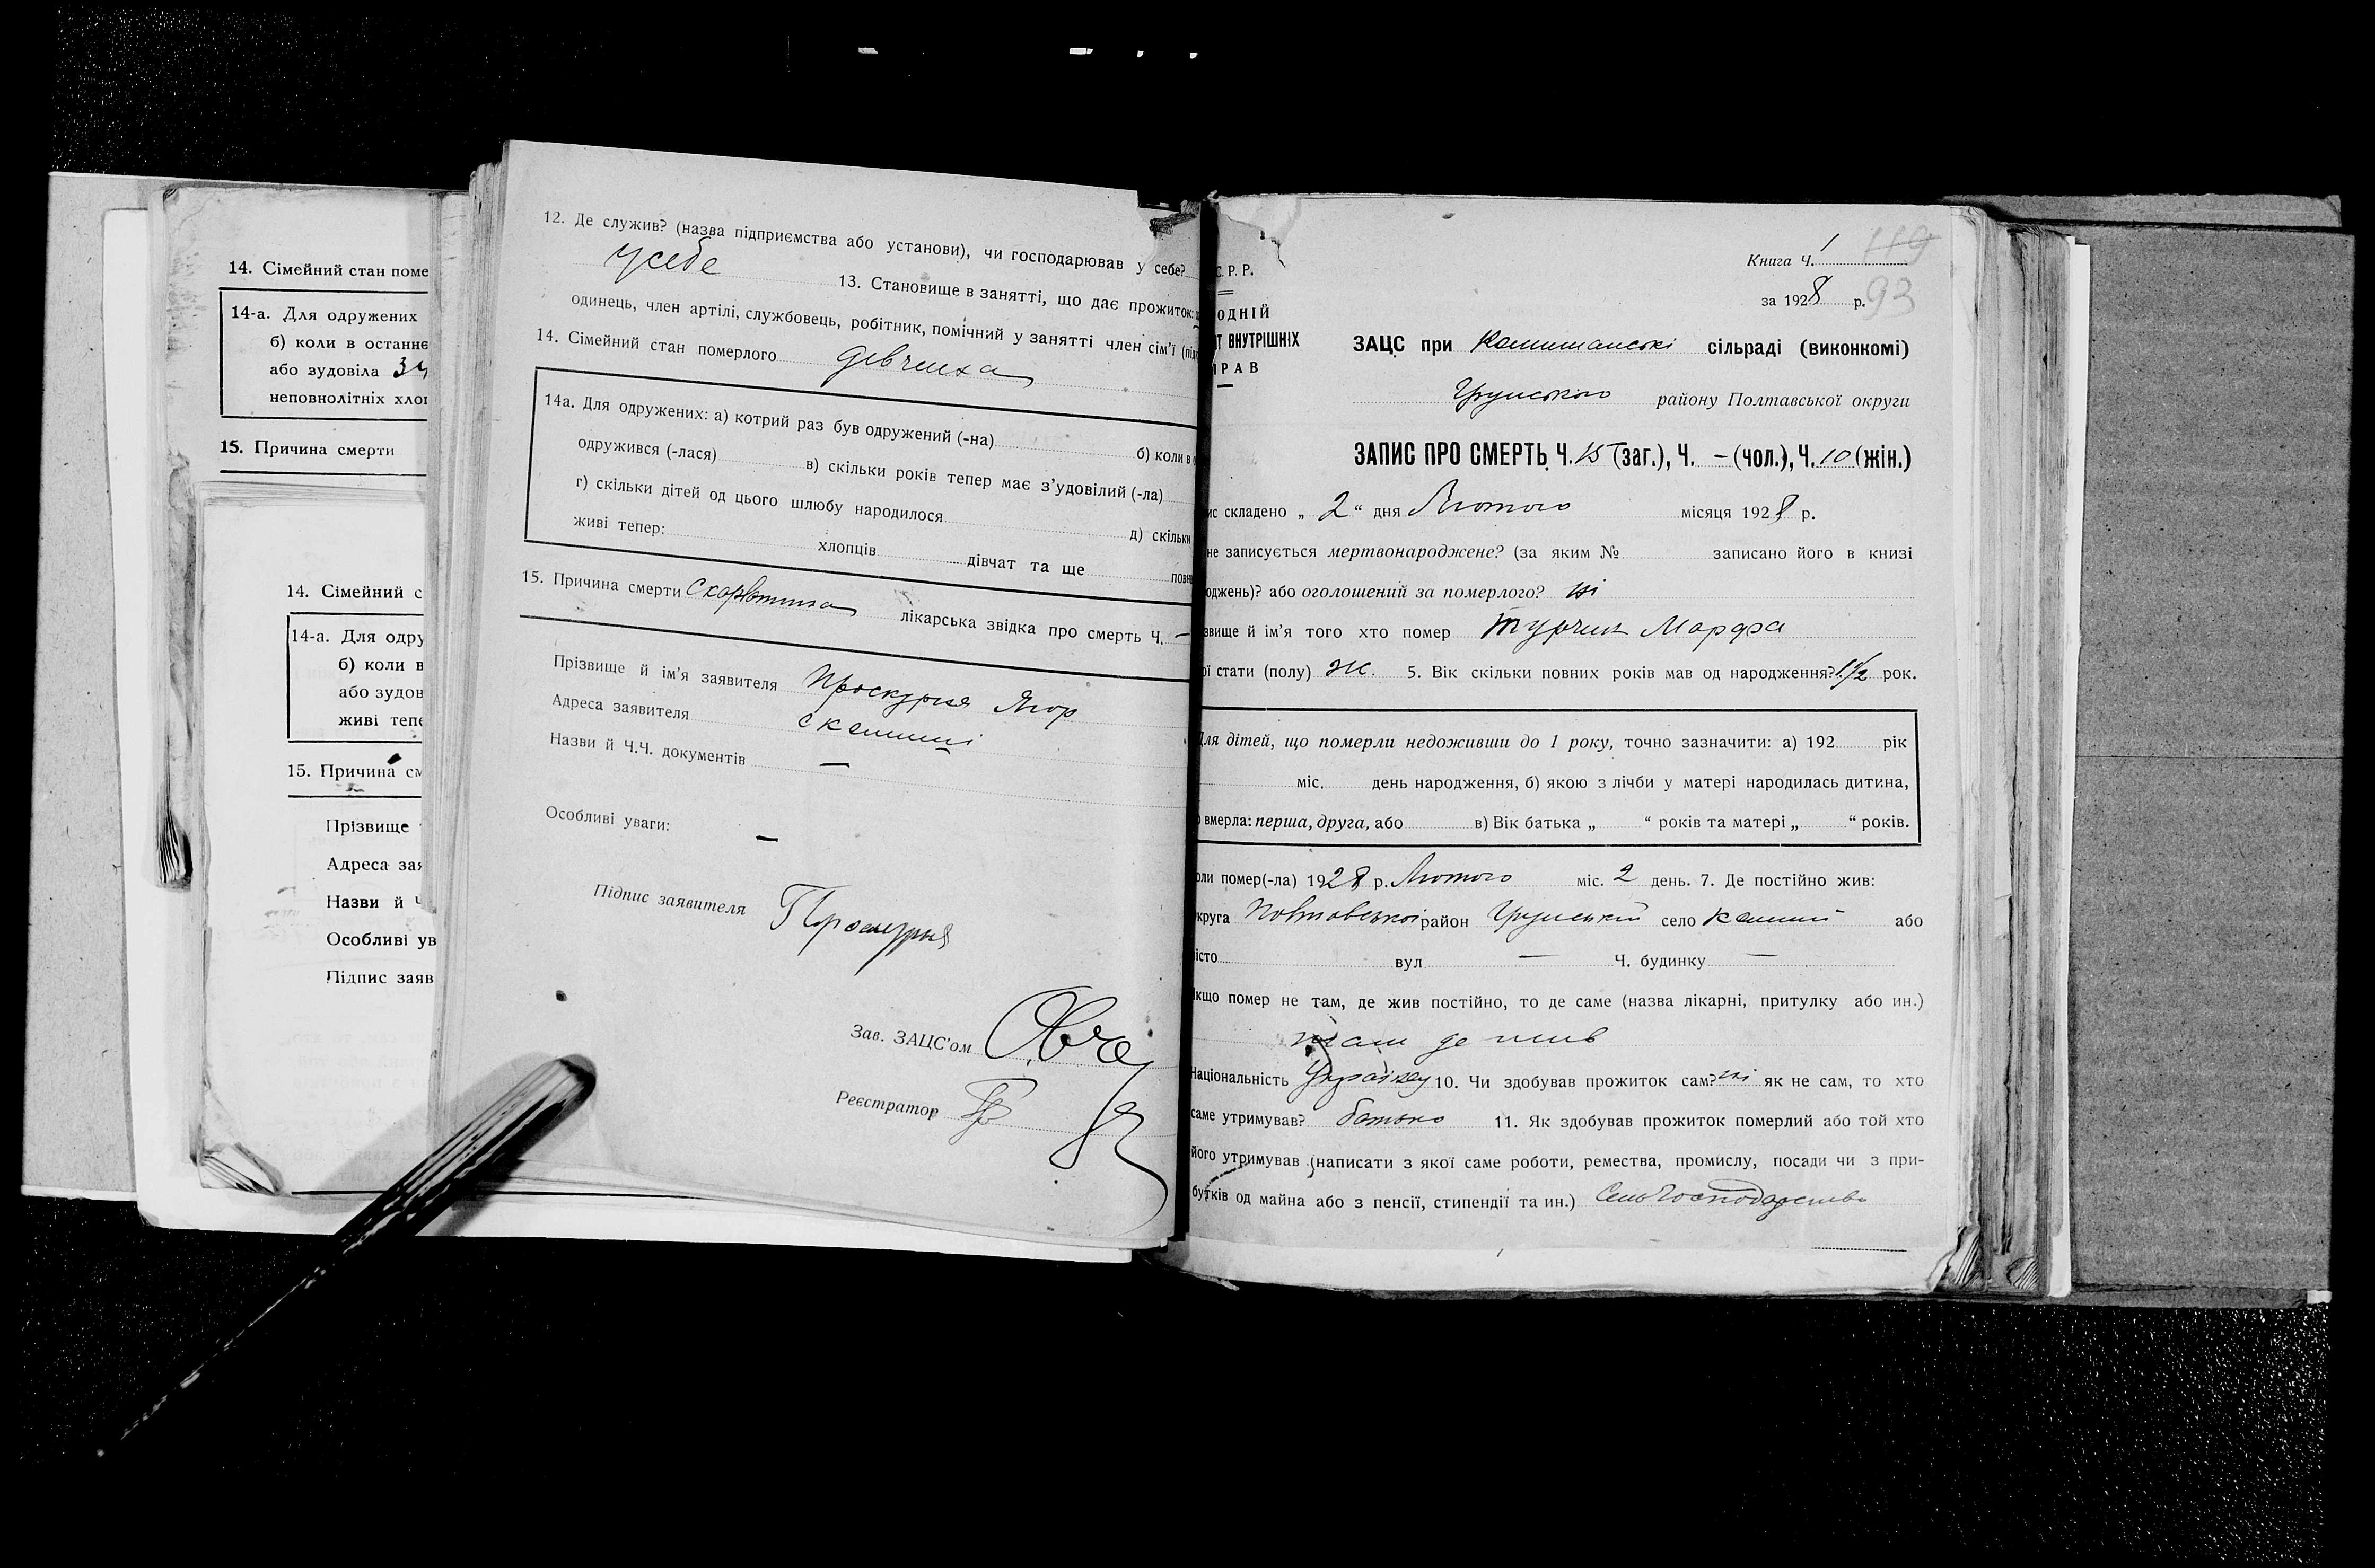 14. Сімейний стан поме
14-а. Для одружених
б) коли в останнє
або зудовіла
неповнолітніх хлоп
15. Причина смерти
14. Сімейний с
14-а. Для одру
б) коли в
або зудов
живі тепе
15. Причина см
Прізвище
Адреса зая
Назви й Ч
Особливі ув
Підпис заяв
12. Де служив? (назва підприємства або установи), чи господарював у себе?
усебе 13. Становище в занятті, що дає прожиток:
одинець, член артілі, службовець, робітник, помічний у занятті член сім'ї (підк
14. Сімейний стан померлого дівчинка
14а. Для одружених: а) котрий раз був одружений (-на) б) коли в о
одружився (-лася) в) скільки років тепер має з'удовілий (-ла)
г) скільки дітей од цього шлюбу народилося д) скільки
живі тепер: хлопців дівчат та ще повно
15. Причина смерти лікарська звідка про смерть Ч. —
Прізвище й ім'я заявителя Проскурня Ягор
Адреса заявителя
Назви й Ч.Ч. документів —
Особливі уваги: —
Підпис заявителя Проскурня
Зав. ЗАЦС'ом
Реєстратор
Книга Ч. 1 119
за 1928 р. 93
С. Р. Р.
ОДНІЙ
Т ВНУТРІШНІХ
РАВ
ЗАЦС при сільраді (виконкомі)
Грунського району Полтавської округи
ЗАПИС ПРО СМЕРТЬ Ч. 15 (заг.), Ч. — (чол.), Ч. 10 (жін.)
ис складено „ 2 “ дня Лютого місяця 1928 р.
не записується мертвонароджене? (за яким № записано його в книзі
оджень)? або оголошений за померлого? ні
звище й ім'я того хто помер Турчин Марфа
ої стати (полу) ж. 5. Вік скільки повних років мав од народження? 1 1/2 рок.
Для дітей, що померли недоживши до 1 року, точно зазначити: а) 192 рік
міс. день народження, б) якою з лічби у матері народилась дитина,
вмерла: перша, друга, або в) Вік батька „ “ років та матері „ “ років.
оли помер(-ла) 1928 р. Лютого міс. 2 день. 7. Де постійно жив:
круга Полтавської район Грунський село або
істо вул — Ч. будинку —
Якщо помер не там, де жив постійно, то де саме (назва лікарні, притулку або ин.)
там де жив
Національність 10. Чи здобував прожиток сам? ні як не сам, то хто
саме утримував? батько 11. Як здобував прожиток померлий або той хто
його утримував (написати з якої саме роботи, ремества, промислу, посади чи з при-
бутків од майна або з пенсії, стипендії та ин.)